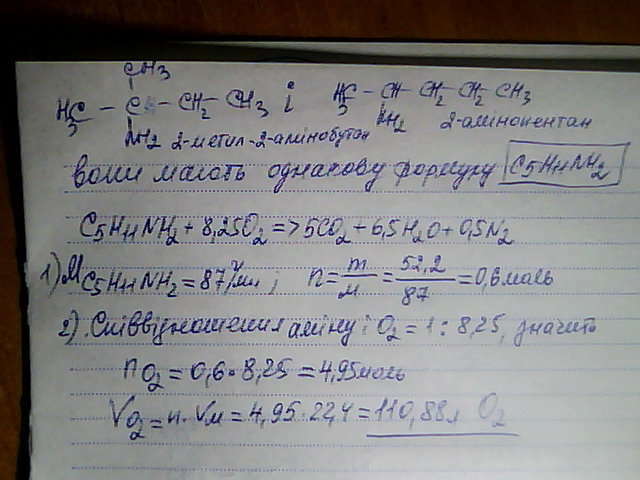 CH3
H3C – C – CH2 – CH3 і H3C – CH – CH2 – CH2 – CH3
NH2 2-метил-2-амінобутан NH2 2-амінопентан
вони мають однакову формулу C5H11NH2
C5H11NH2 + 8,25O2 => 5CO2 + 6,5H2O + 0,5N2
1) M C5H11NH2 = 87 г/моль; n = m/M = 52,2/87 = 0,6 моль
2). Співвідношення аміну і O2 = 1 : 8,25, значить
n O2 = 0,6 · 8,25 = 4,95 моль
V O2 = n · Vм = 4,95 · 22,4 = 110,88 л O2